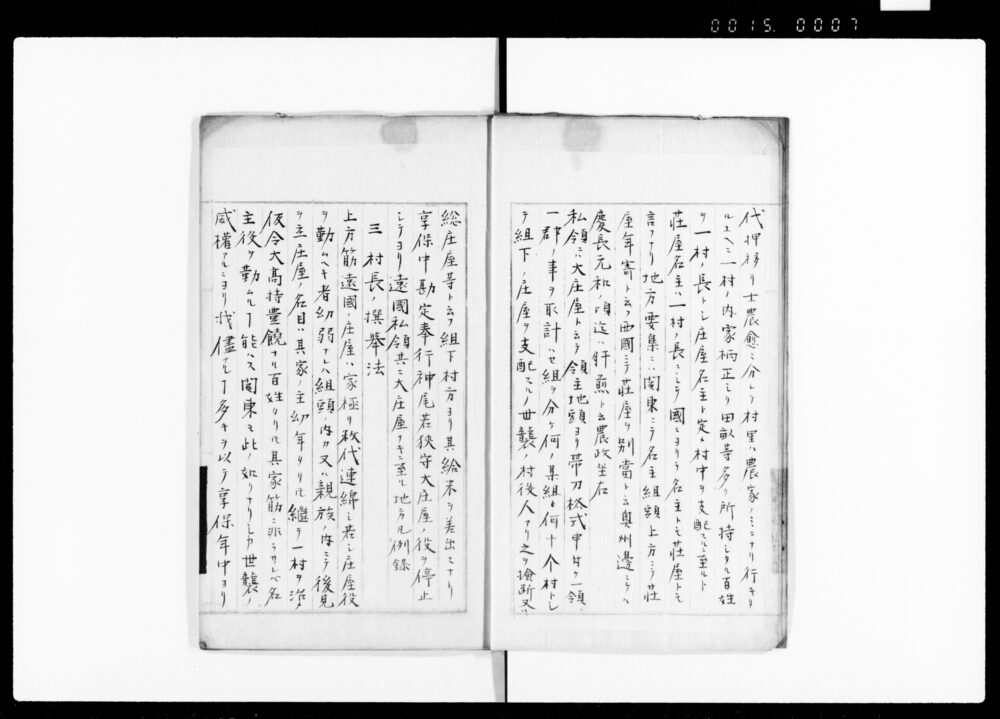 0015. 0007
代押移リ士農愈〻分レテ村里ハ農家ノミニナリ行キタ
ルユヘニ一村ノ内家柄正シク田畝等多ク所持シタル百姓
ヲ一村ノ長トシ庄屋名主ト定メ村中ヲ支配スルニ至ルト
荘屋名主ハ一村ノ長ニシテ國ニヨリテ名主トモ荘屋トモ
言フナリ地方要集ニハ関東ニテ名主組頭上方ニテハ荘
屋年寄ト云フ西國ニテ荘屋ヲ別當ト云奥州邊ニテハ
慶長元和ノ頃迄ハ肝煎ト云農政坐右
私領ニハ大庄屋ト云テ領主地頭ヨリ帯刀格式申付ケ一領
一郡ノ事ヲ取計ハセ組ヲ分ケ何ノ某組ト何十个村トシ
テ組下ノ庄屋ヲ支配スルノ世襲ノ村役人アリ之ヲ撿断又ハ
総庄屋等ト云フ組下村方ヨリ其給米ヲ差出セシナリ
享保中勘定奉行神尾若狭守大庄屋ノ役ヲ停止
シテヨリ遠國私領共ニ大庄屋ナキニ至ル地方凡例録
三 村長ノ撰擧法
上方筋遠國ノ庄屋ハ家極リ数代連綿シ若シ庄屋役
ヲ勤ムヘキ者幼弱ナレハ組頭ノ内カ又ハ親族ノ内ニテ後見
ヲ立庄屋ノ名目ハ其家ノ主幼年タリトモ継テ一村ヲ治メ
仮令大高持豊饒ナル百姓タリトモ其家筋ニ非ラサレハ名
主役ヲ勤ムル丁能ハス関東モ此ノ如クナリシカ世襲ノ
威權アルニヨリ我儘ナル丁多キヲ以テ享保年中ヨリ